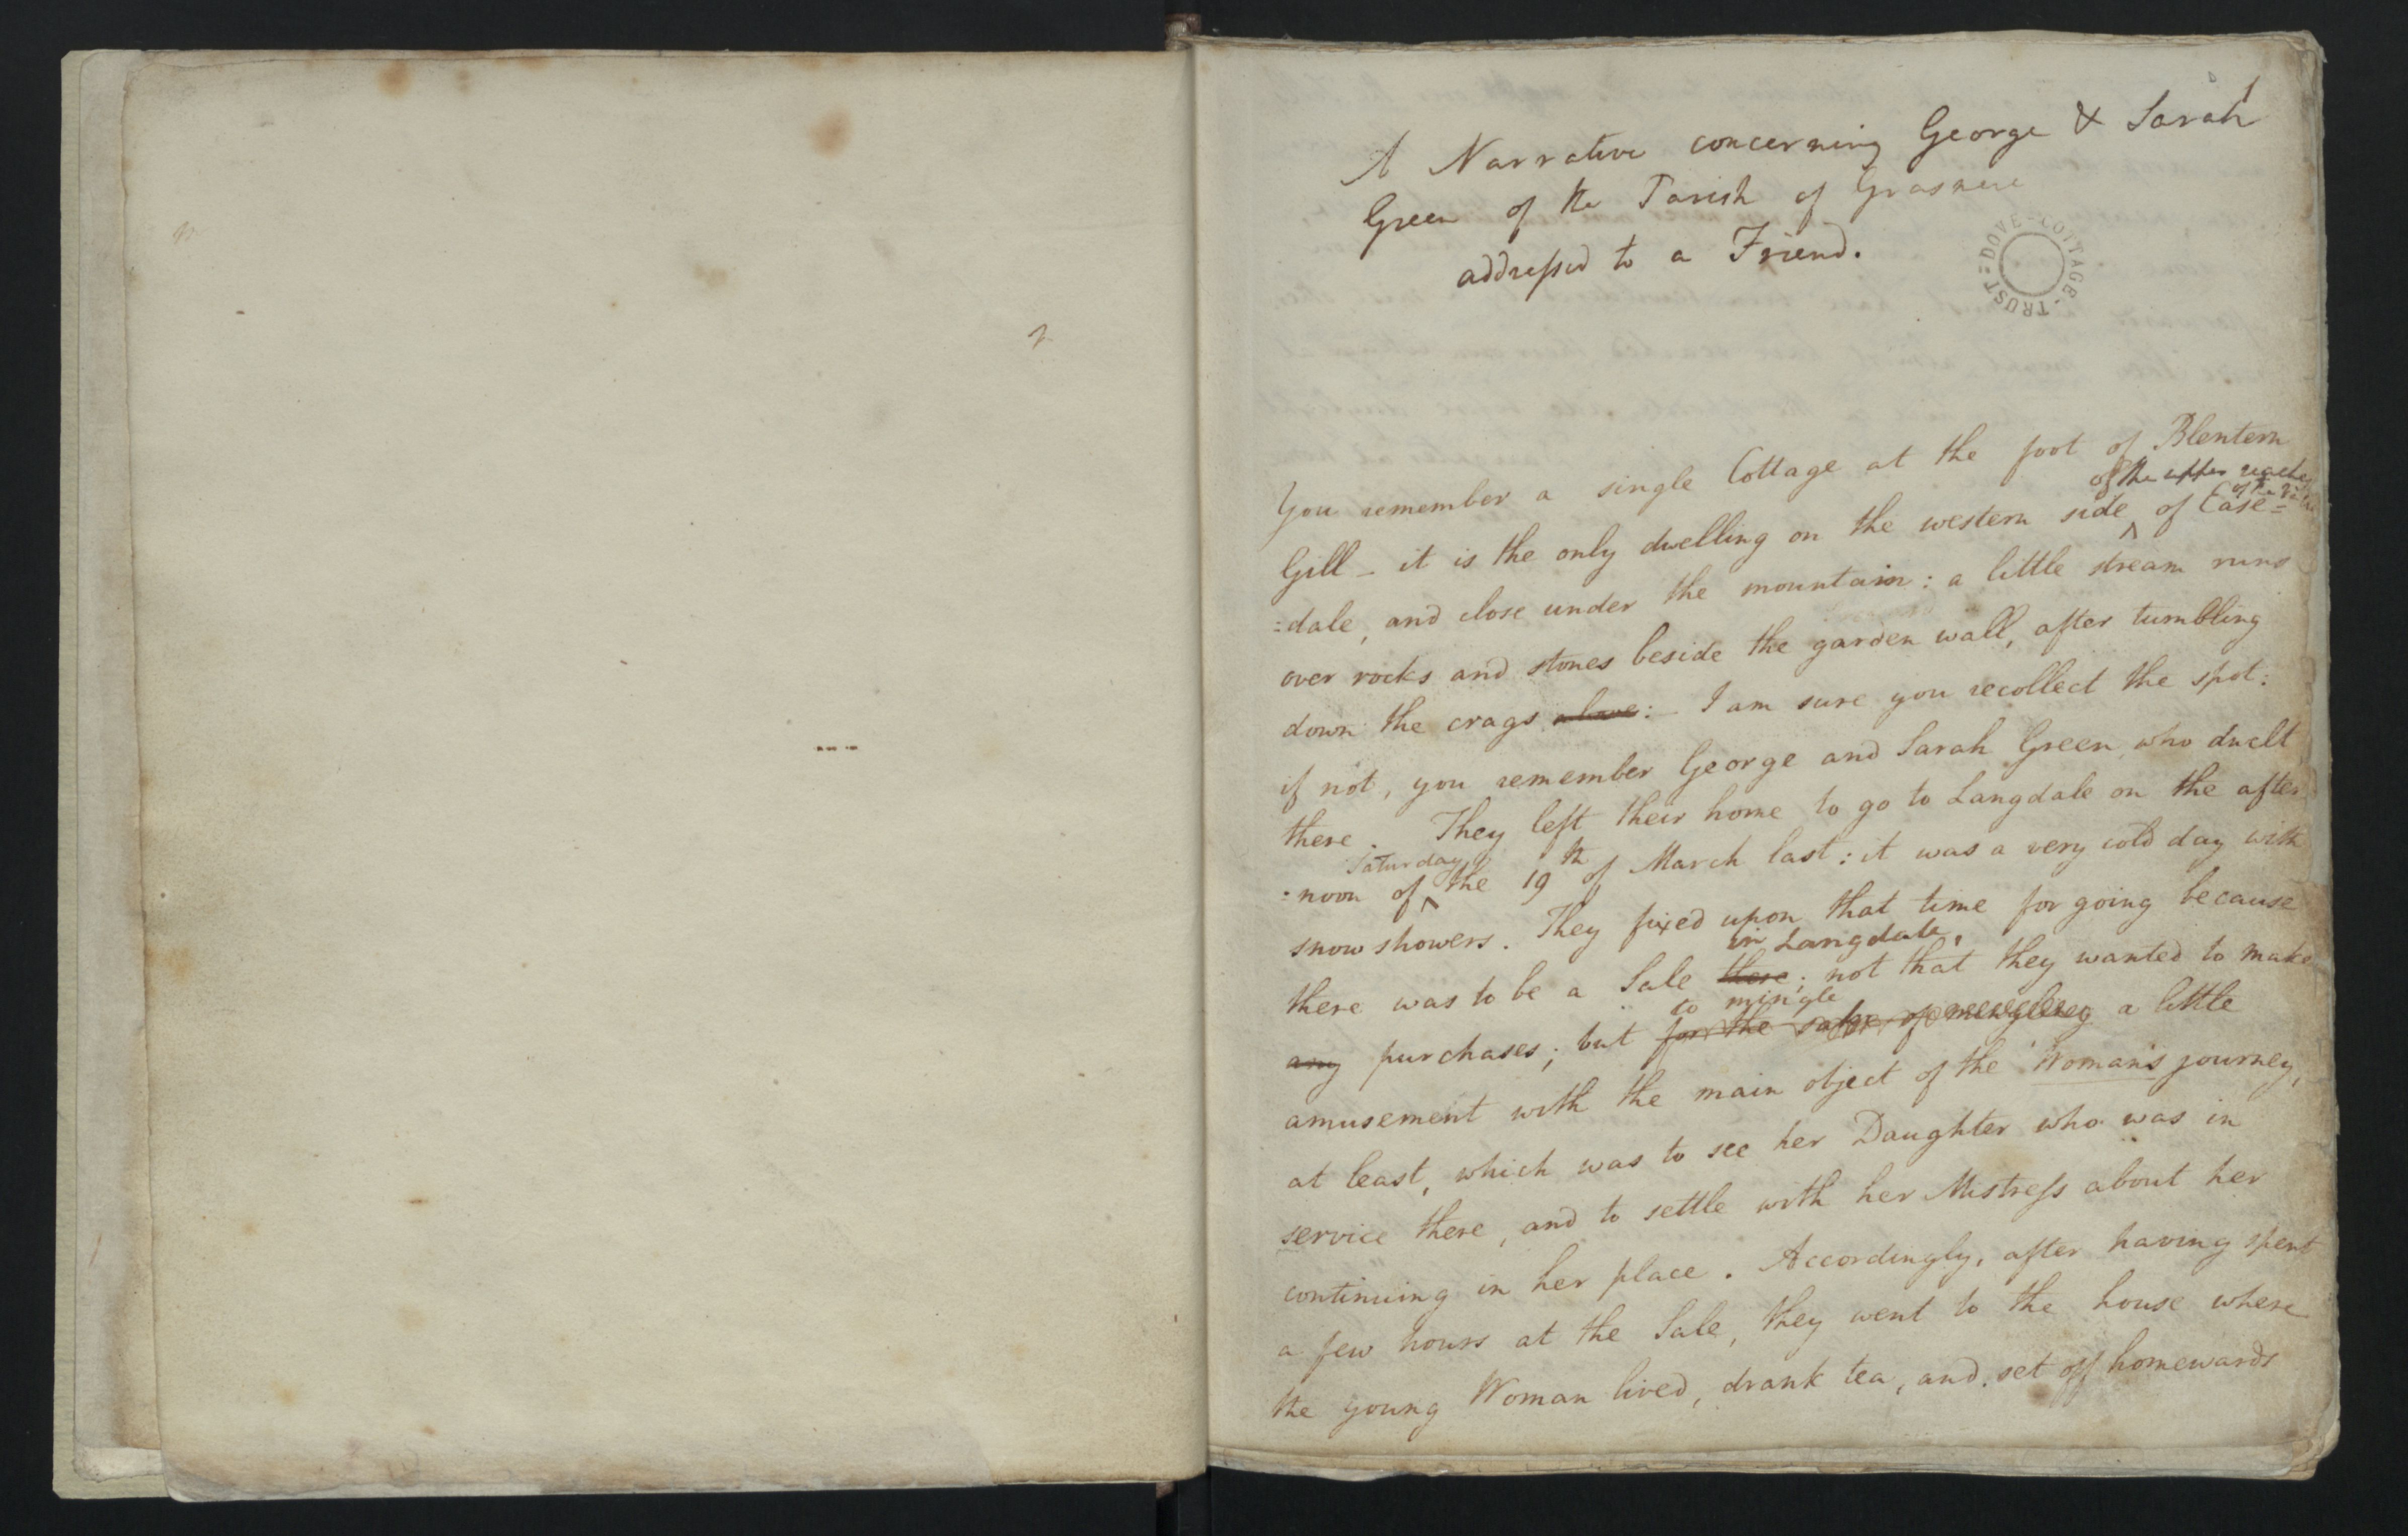 1
A Narrative concerning George & Sarah
Green of the Parish of Grasmere
addressed to a Friend.
DOVE-COTTAGE-TRUST
You remember a single Cottage at the foot of Blentern
of the upper reaches
of the
Gill – it is the only dwelling on the western side ^ of Ease=
=dale, and close under the mountain: a little stream runs
over rocks and stones beside the garden wall, after tumbling
down the crags above: – I am sure you recollect the spot:
if not, you remember George and Sarah Green who dwelt
there. They left their home to go to Langdale on the after
Saturday
-noon of ^ the 19th of March last: it was a very cold day with
snow showers. They fixed upon that time for going because
in Langdale,
there was to be a Sale there; not that they wanted to make
to mingle
any purchases; but for the sake of mingling a little
amusement with the main object of the Woman's journey,
at least, which was to see her Daughter who was in
service there, and to settle with her Mistress about her
continuing in her place. Accordingly, after having spent
a few hours at the Sale, they went to the house where
the young Woman lived, drank tea, and set off homewards